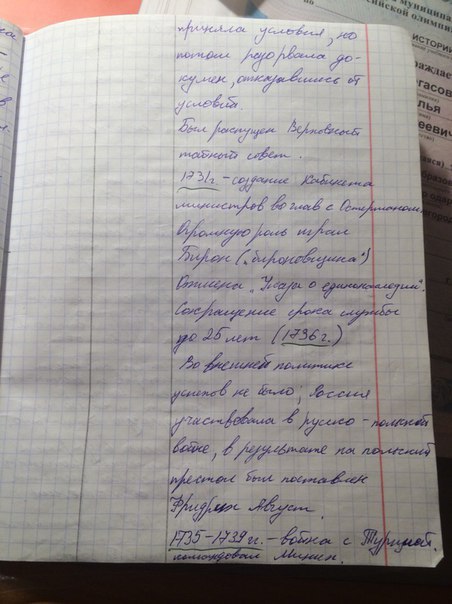 приняла условия, но
потом разорвала до-
кумен, отказавшись от
условий.
Был распущен Верховный
тайный совет.
1731г. - создание Кабинета
министров во глав с Остерманом
Огромную роль играл
Бирон ("бироновщина")
Отмена "Указа о единонаследии".
Сокращение срока службы
до 25 лет (1736г.)
Во внешней политике
успехов не было; Россия
участвовала в руско-польской
войне, в результате на польский
престол был поставлен
Фридрих Август.
1735-1739 гг. - война с Турцией.
командовал Миних.
ИСТОРИ
граждае
гасов
лья
еевич